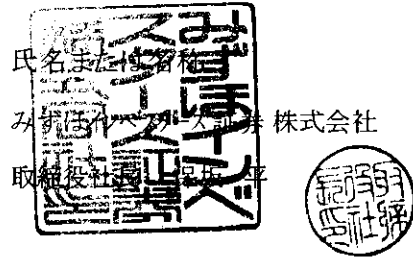 氏名または名称
みずほインベスターズ証券 株式会社
取締役社長 保坂 平
みずほインベ
スターズ証券